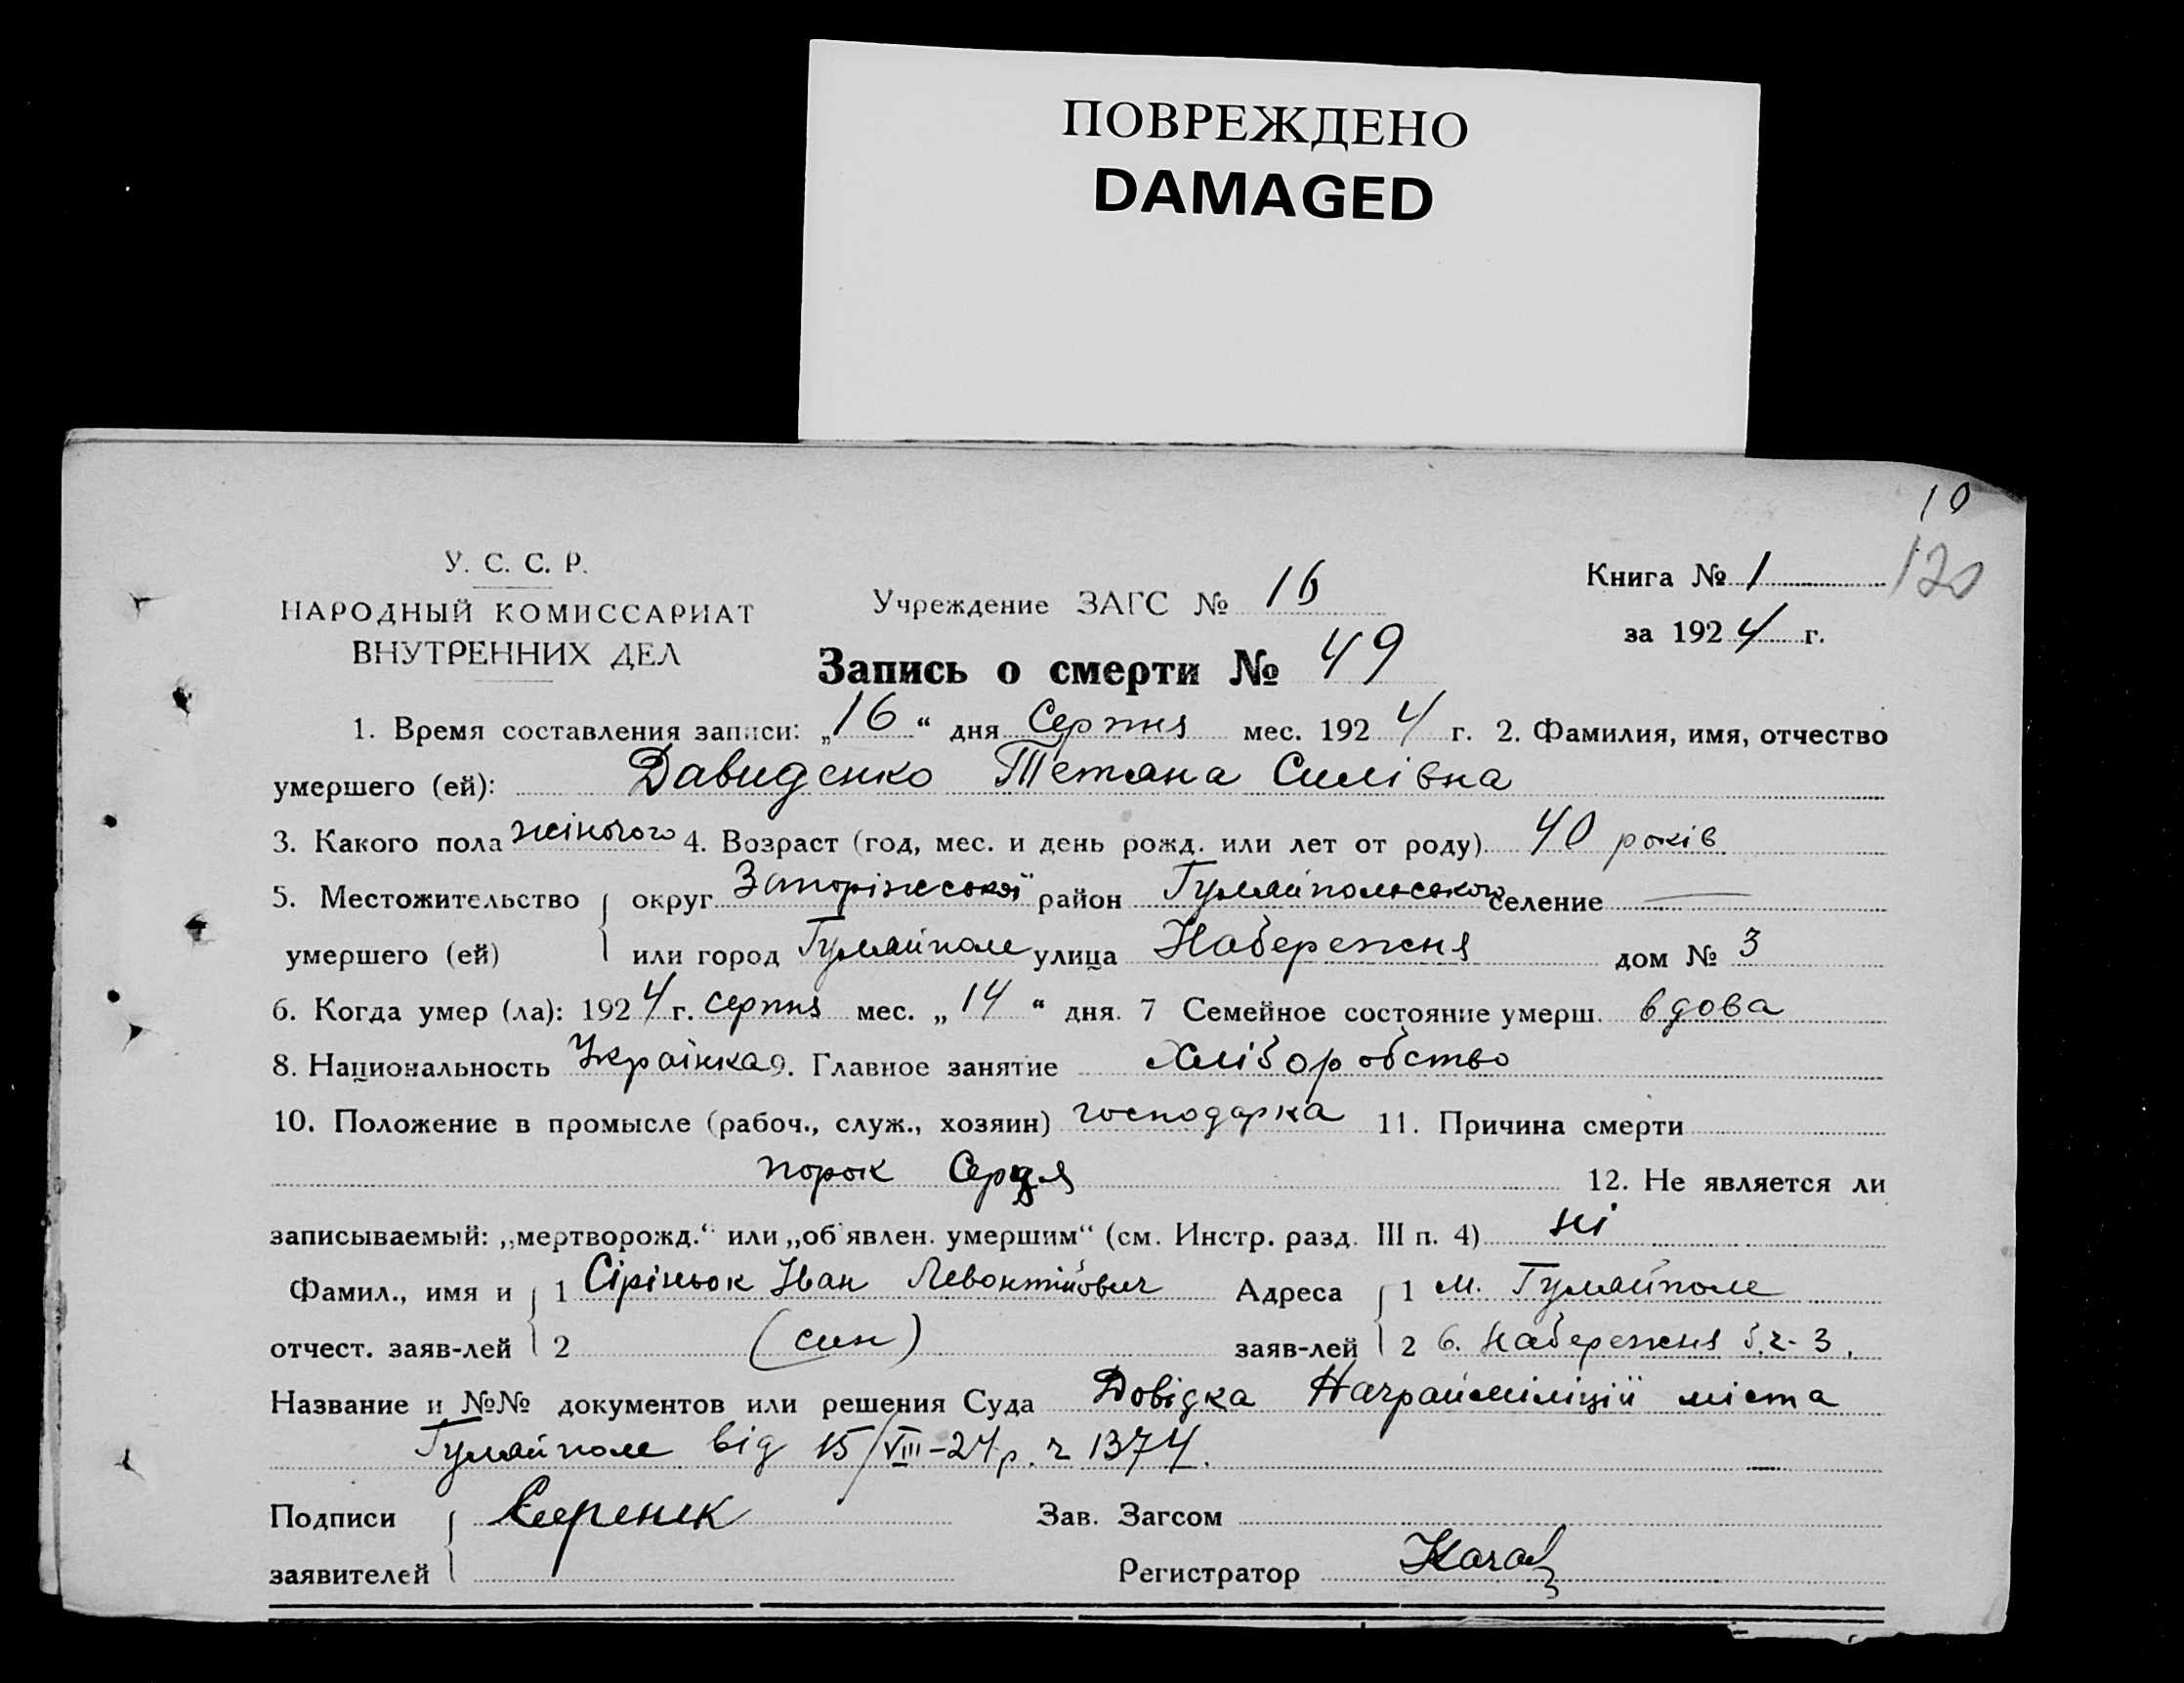 ПОВРЕЖДЕНО
DAMAGED
10
120
У. С. С. Р.
НАРОДНЫЙ КОМИССАРИАТ
ВНУТРЕННИХ ДЕЛ
Учреждение ЗАГС № 16
Книга № 1
за 1924 г.
Запись о смерти № 49
1. Время составления записи: „16“ дня Серпня мес. 1924 г. 2. Фамилия, имя, отчество
умершего (ей): Давиденко Тетяна Силівна
3. Какого пола жіночого 4. Возраст (год, мес. и день рожд. или лет от роду) 40 років
5. Местожительство округ Запоріжської район Гуляйпольського селение —
умершего (ей) или город Гуляйполе улица Набережня дом № 3
6. Когда умер (ла): 1924 г. серпня мес. „14“ дня. 7 Семейное состояние умерш. вдова
8. Национальность Українка 9. Главное занятие хліборобство
10. Положение в промысле (рабоч., служ., хозяин) господарка 11. Причина смерти
порок Серця 12. Не является ли
записываемый: „мертворожд.“ или „об'явлен. умершим“ (см. Инстр. разд. III п. 4) ні
Фамил., имя и 1 Сіріньок Іван Левонтійович Адреса 1 м. Гуляйполе
отчест. заяв-лей 2 (син) заяв-лей 2 в. Набережня б.ч. 3.
Название и №№ документов или решения Суда Довідка Начрайміліції міста
Гуляйполе від 15/VIII-24 р. ч 1374.
Подписи Зав. Загсом
заявителей Регистратор